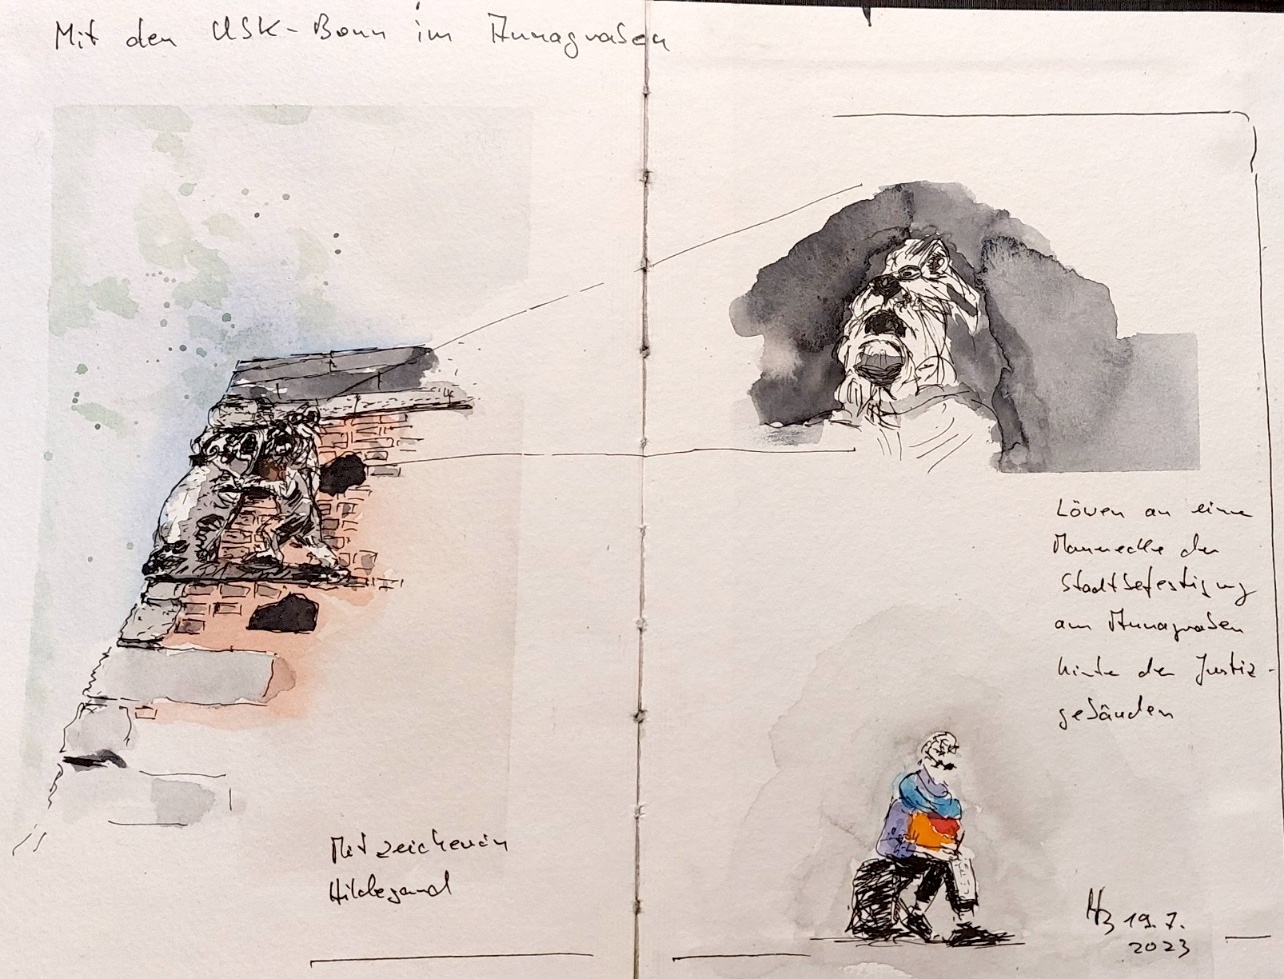 Mit den USK-Bonn im Annagraben
Löwen an eine
Mauerecke der
Stadtbefestigung
am Annagraben
hinte den Justiz-
gebäuden
Mitzeichnerin
Hildegard
Hz 19.7.
2023